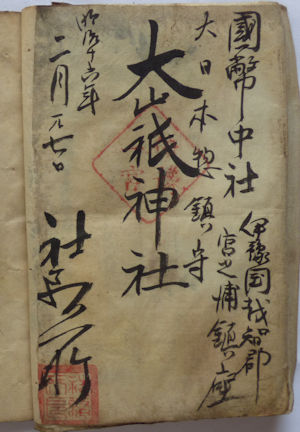 國幣中社
伊豫国越智郡
宮之浦鎮座
大日本惣鎮守
大山祇神社
明治十六年
二月廿七日
社務所